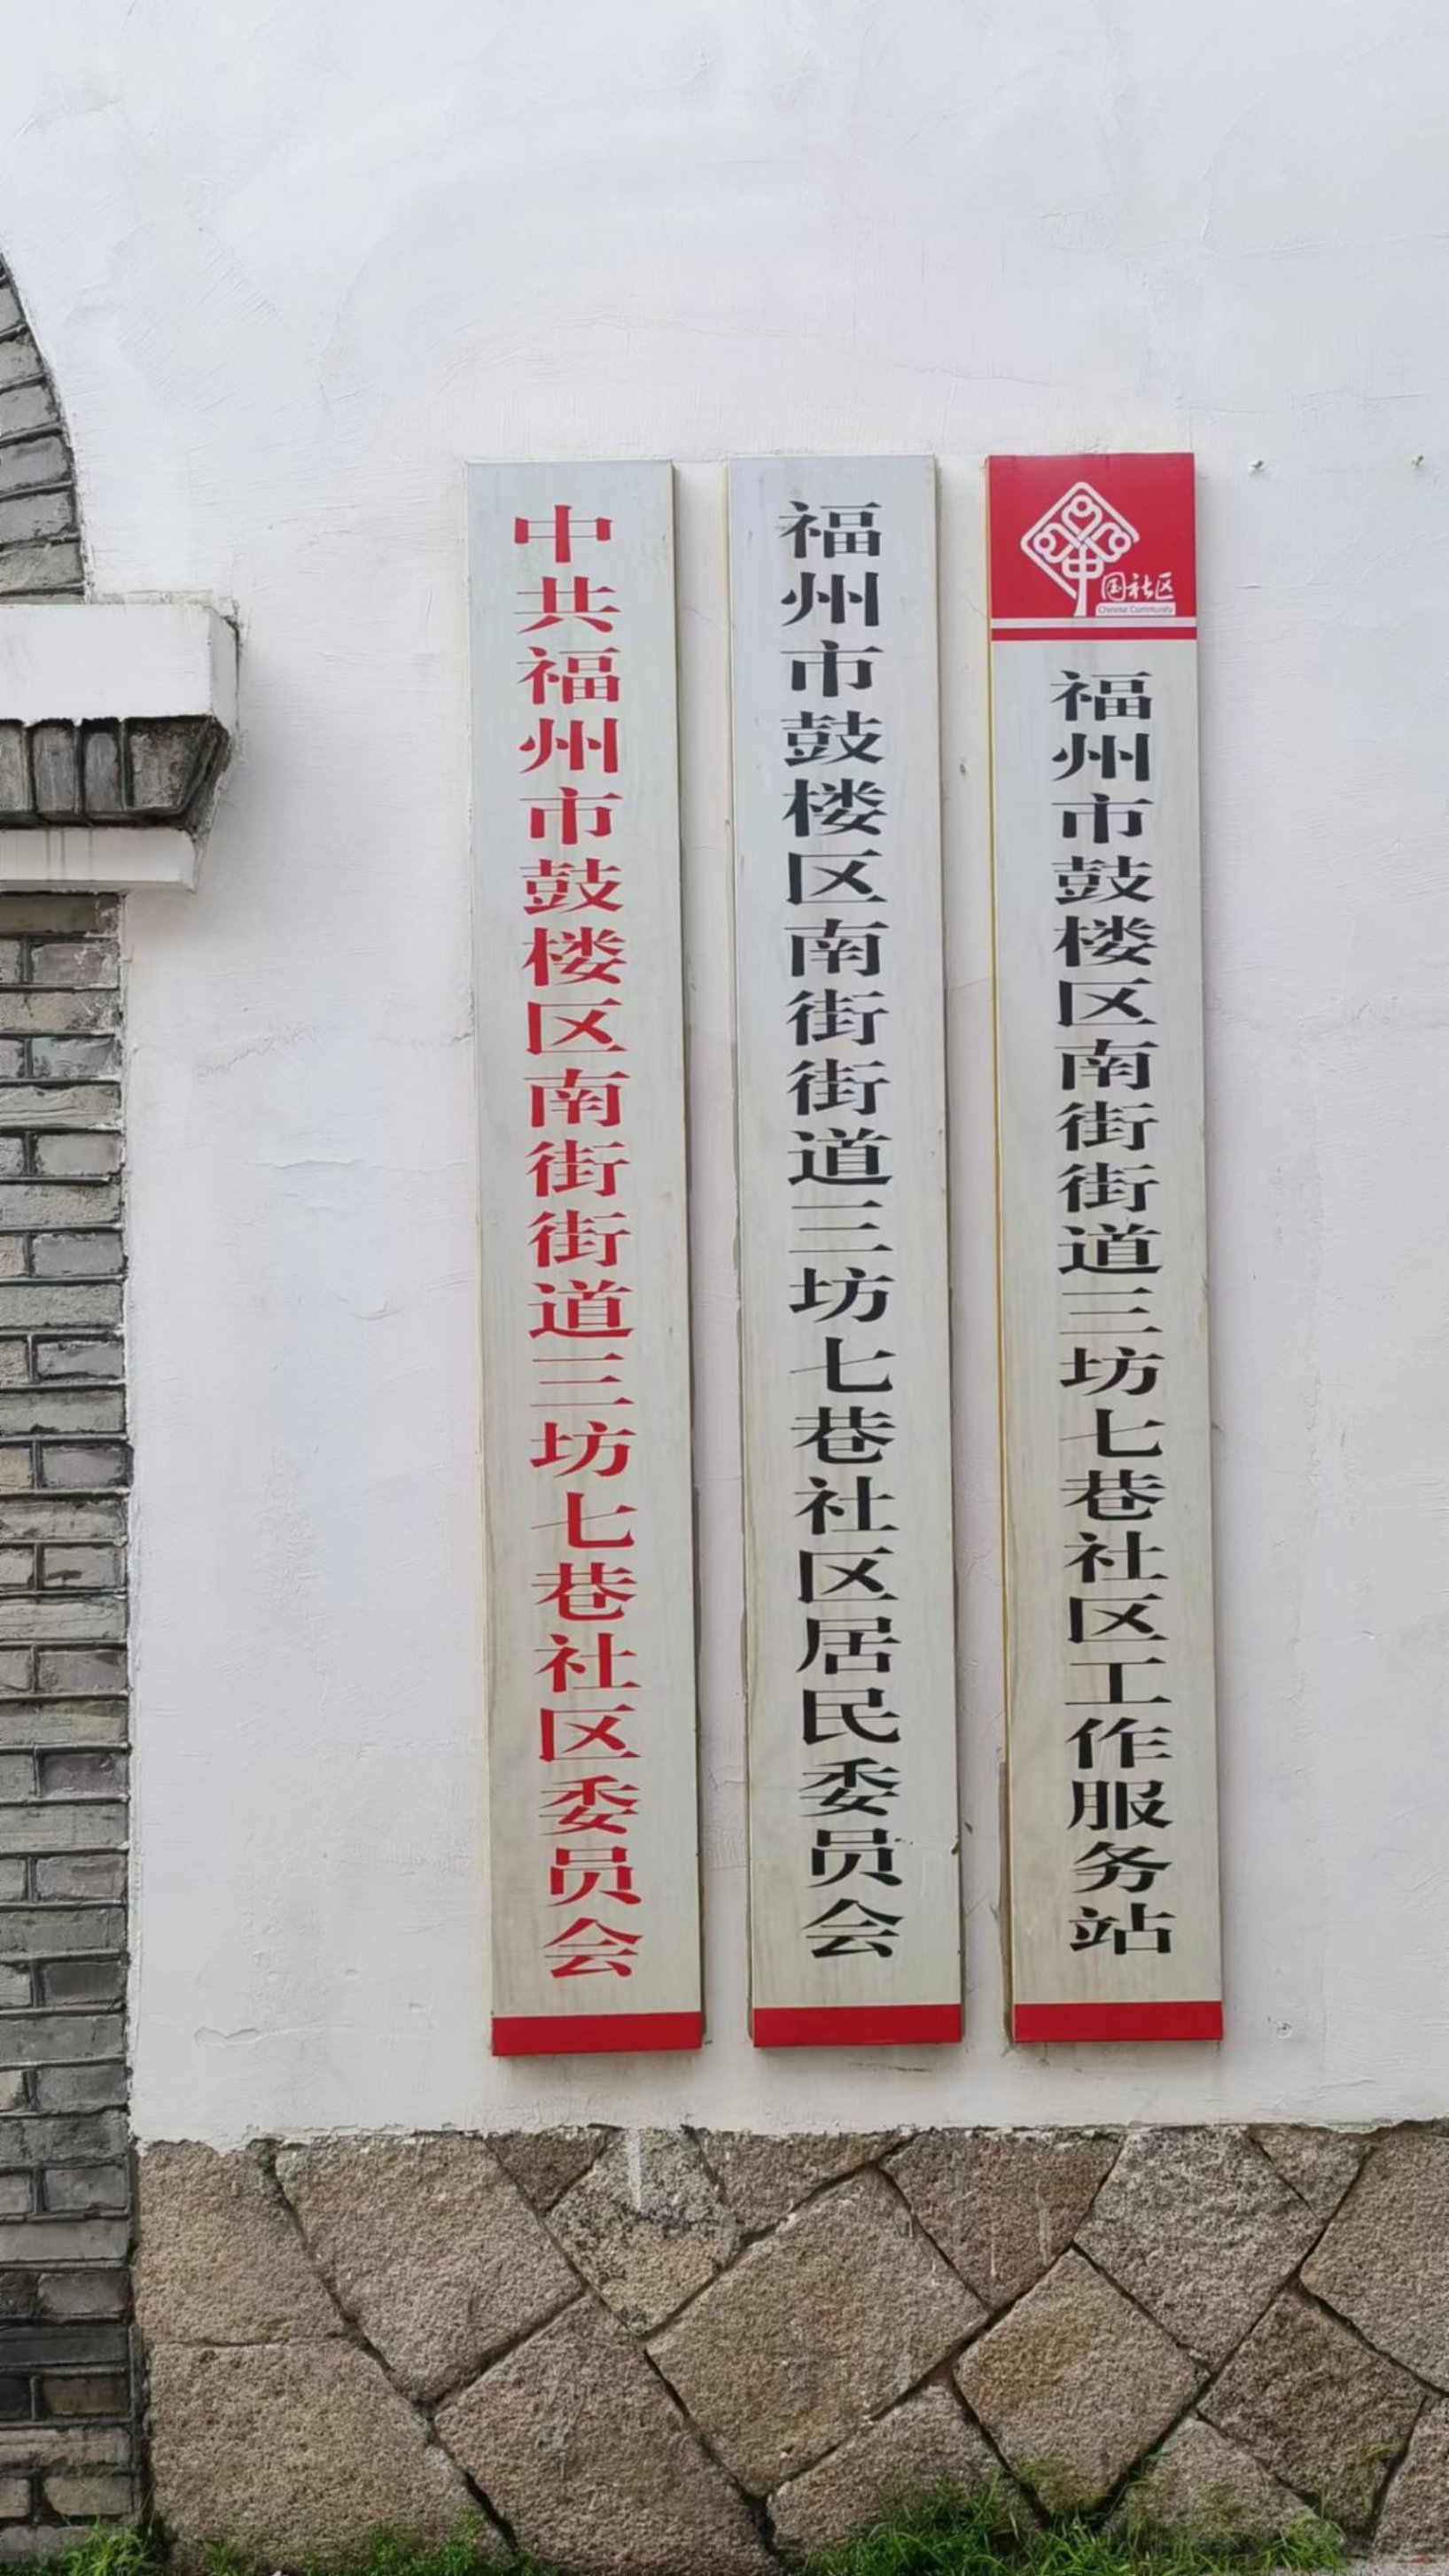 中共福州市鼓楼区南街街道三坊七巷社区委员会
福州市鼓楼区南街街道三坊七巷社区居民委员会
中国社区
Chinese Community
福州市鼓楼区南街街道三坊七巷社区工作服务站